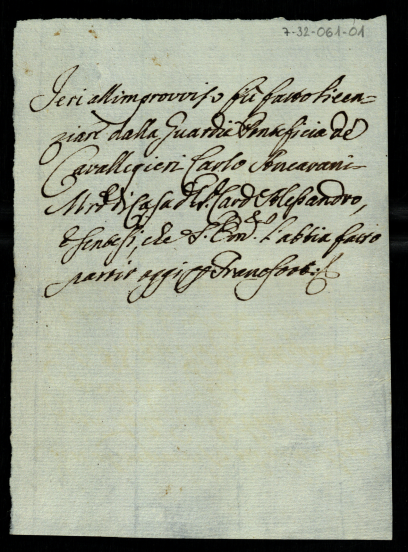 7-32-061-01
Jeri all'improvviso fù fatto licen-
ziare dalla Guardia Pontificia de
Cavallegieri Carlo Ancarani
di Casa del Sr. Card. Alessandro,
e sentesi, che S. Em. l'abbia fatto
partir oggi p Francfort.